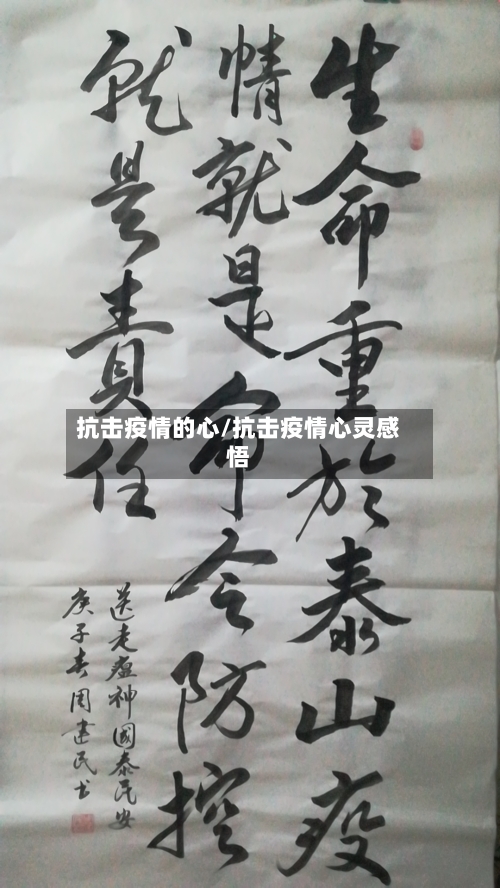 生命重於泰山疫
情就是命令防控
就是責任
送走瘟神國泰民安
庚子春周建民书
抗击疫情的心/抗击疫情心灵感
悟